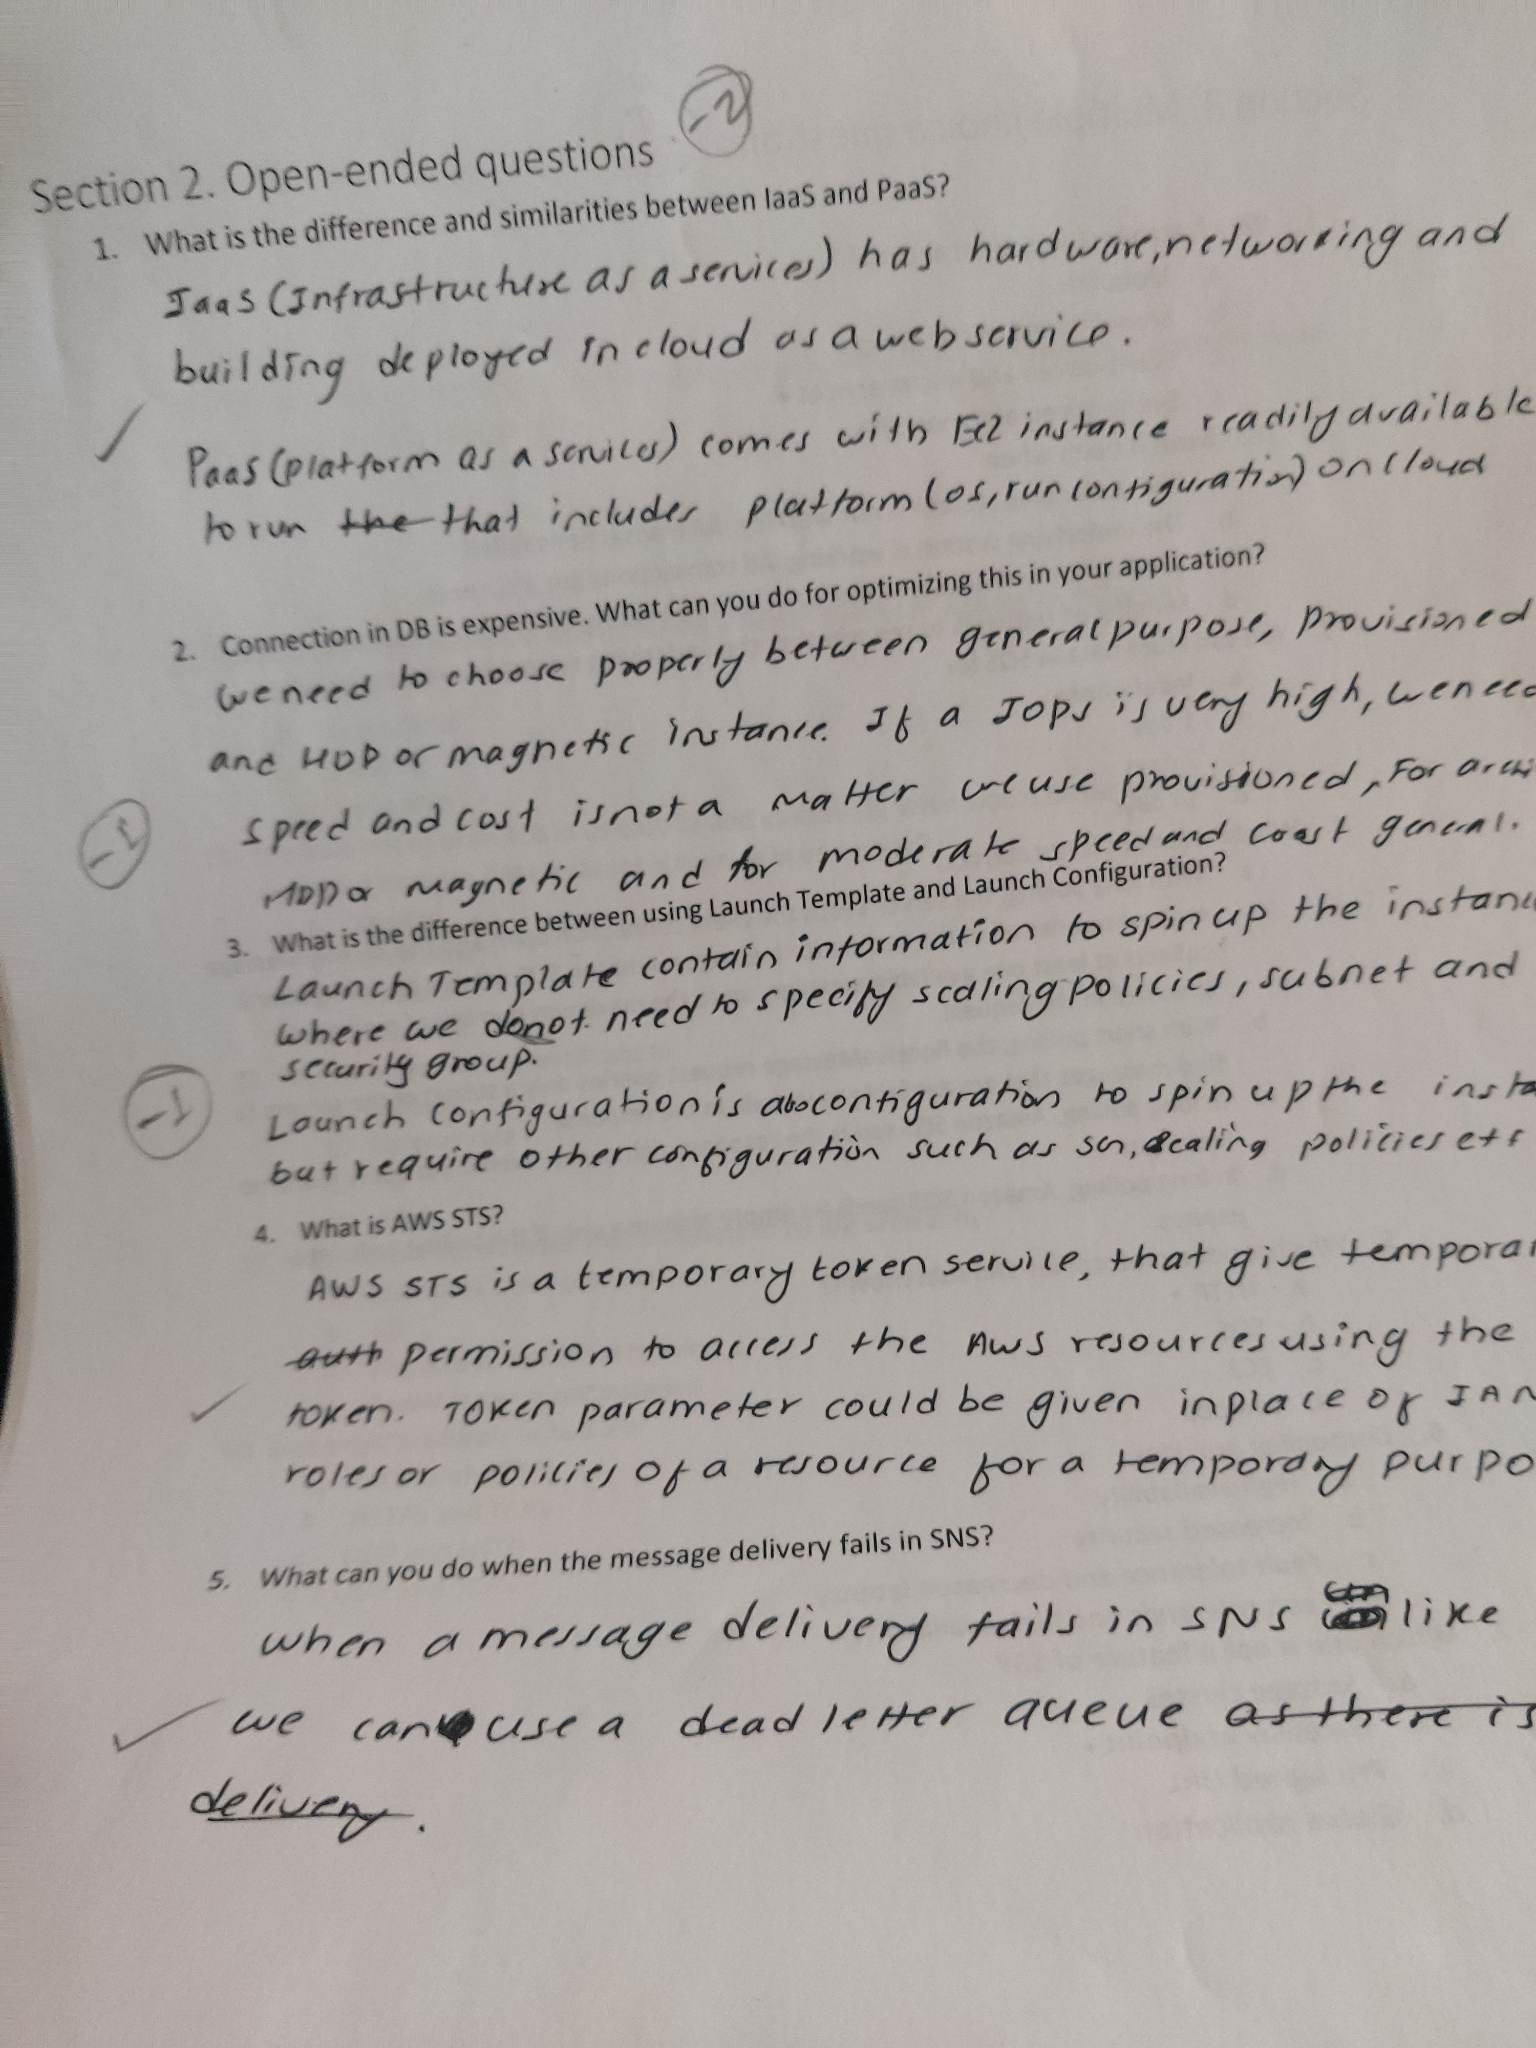 -2
Section 2. Open-ended questions
1. What is the difference and similarities between IaaS and PaaS?
IaaS (Infrastructure as a services) has hardware, networking and
building deployed in cloud as a web service.
PaaS (platform as a services) comes with Ec2 instance readily available
to run the that includes platform (os, run configuration) on cloud
2. Connection in DB is expensive. What can you do for optimizing this in your application?
we need to choose properly between general purpose, provisioned
and HDD or magnetic instance. If a IOPS is very high, we need
speed and cost is not a matter we use provisioned, For
-1
HDD or magnetic and for moderate speed and cost general.
3. What is the difference between using Launch Template and Launch Configuration?
Launch Template contain information to spin up the
where we donot need to specify scaling policies, subnet and
security group.
-1
Launch configuration is also configuration to spin up the
but require other configuration such as sg, scaling policies etc
4. What is AWS STS?
AWS STS is a temporary token service, that give
auth permission to access the AWS resources using the
token. Token parameter could be given inplace of
roles or policies of a resource for a temporary
5. What can you do when the message delivery fails in SNS?
when a message delivery fails in SNS like
we can use a dead letter queue as there is
delivery.